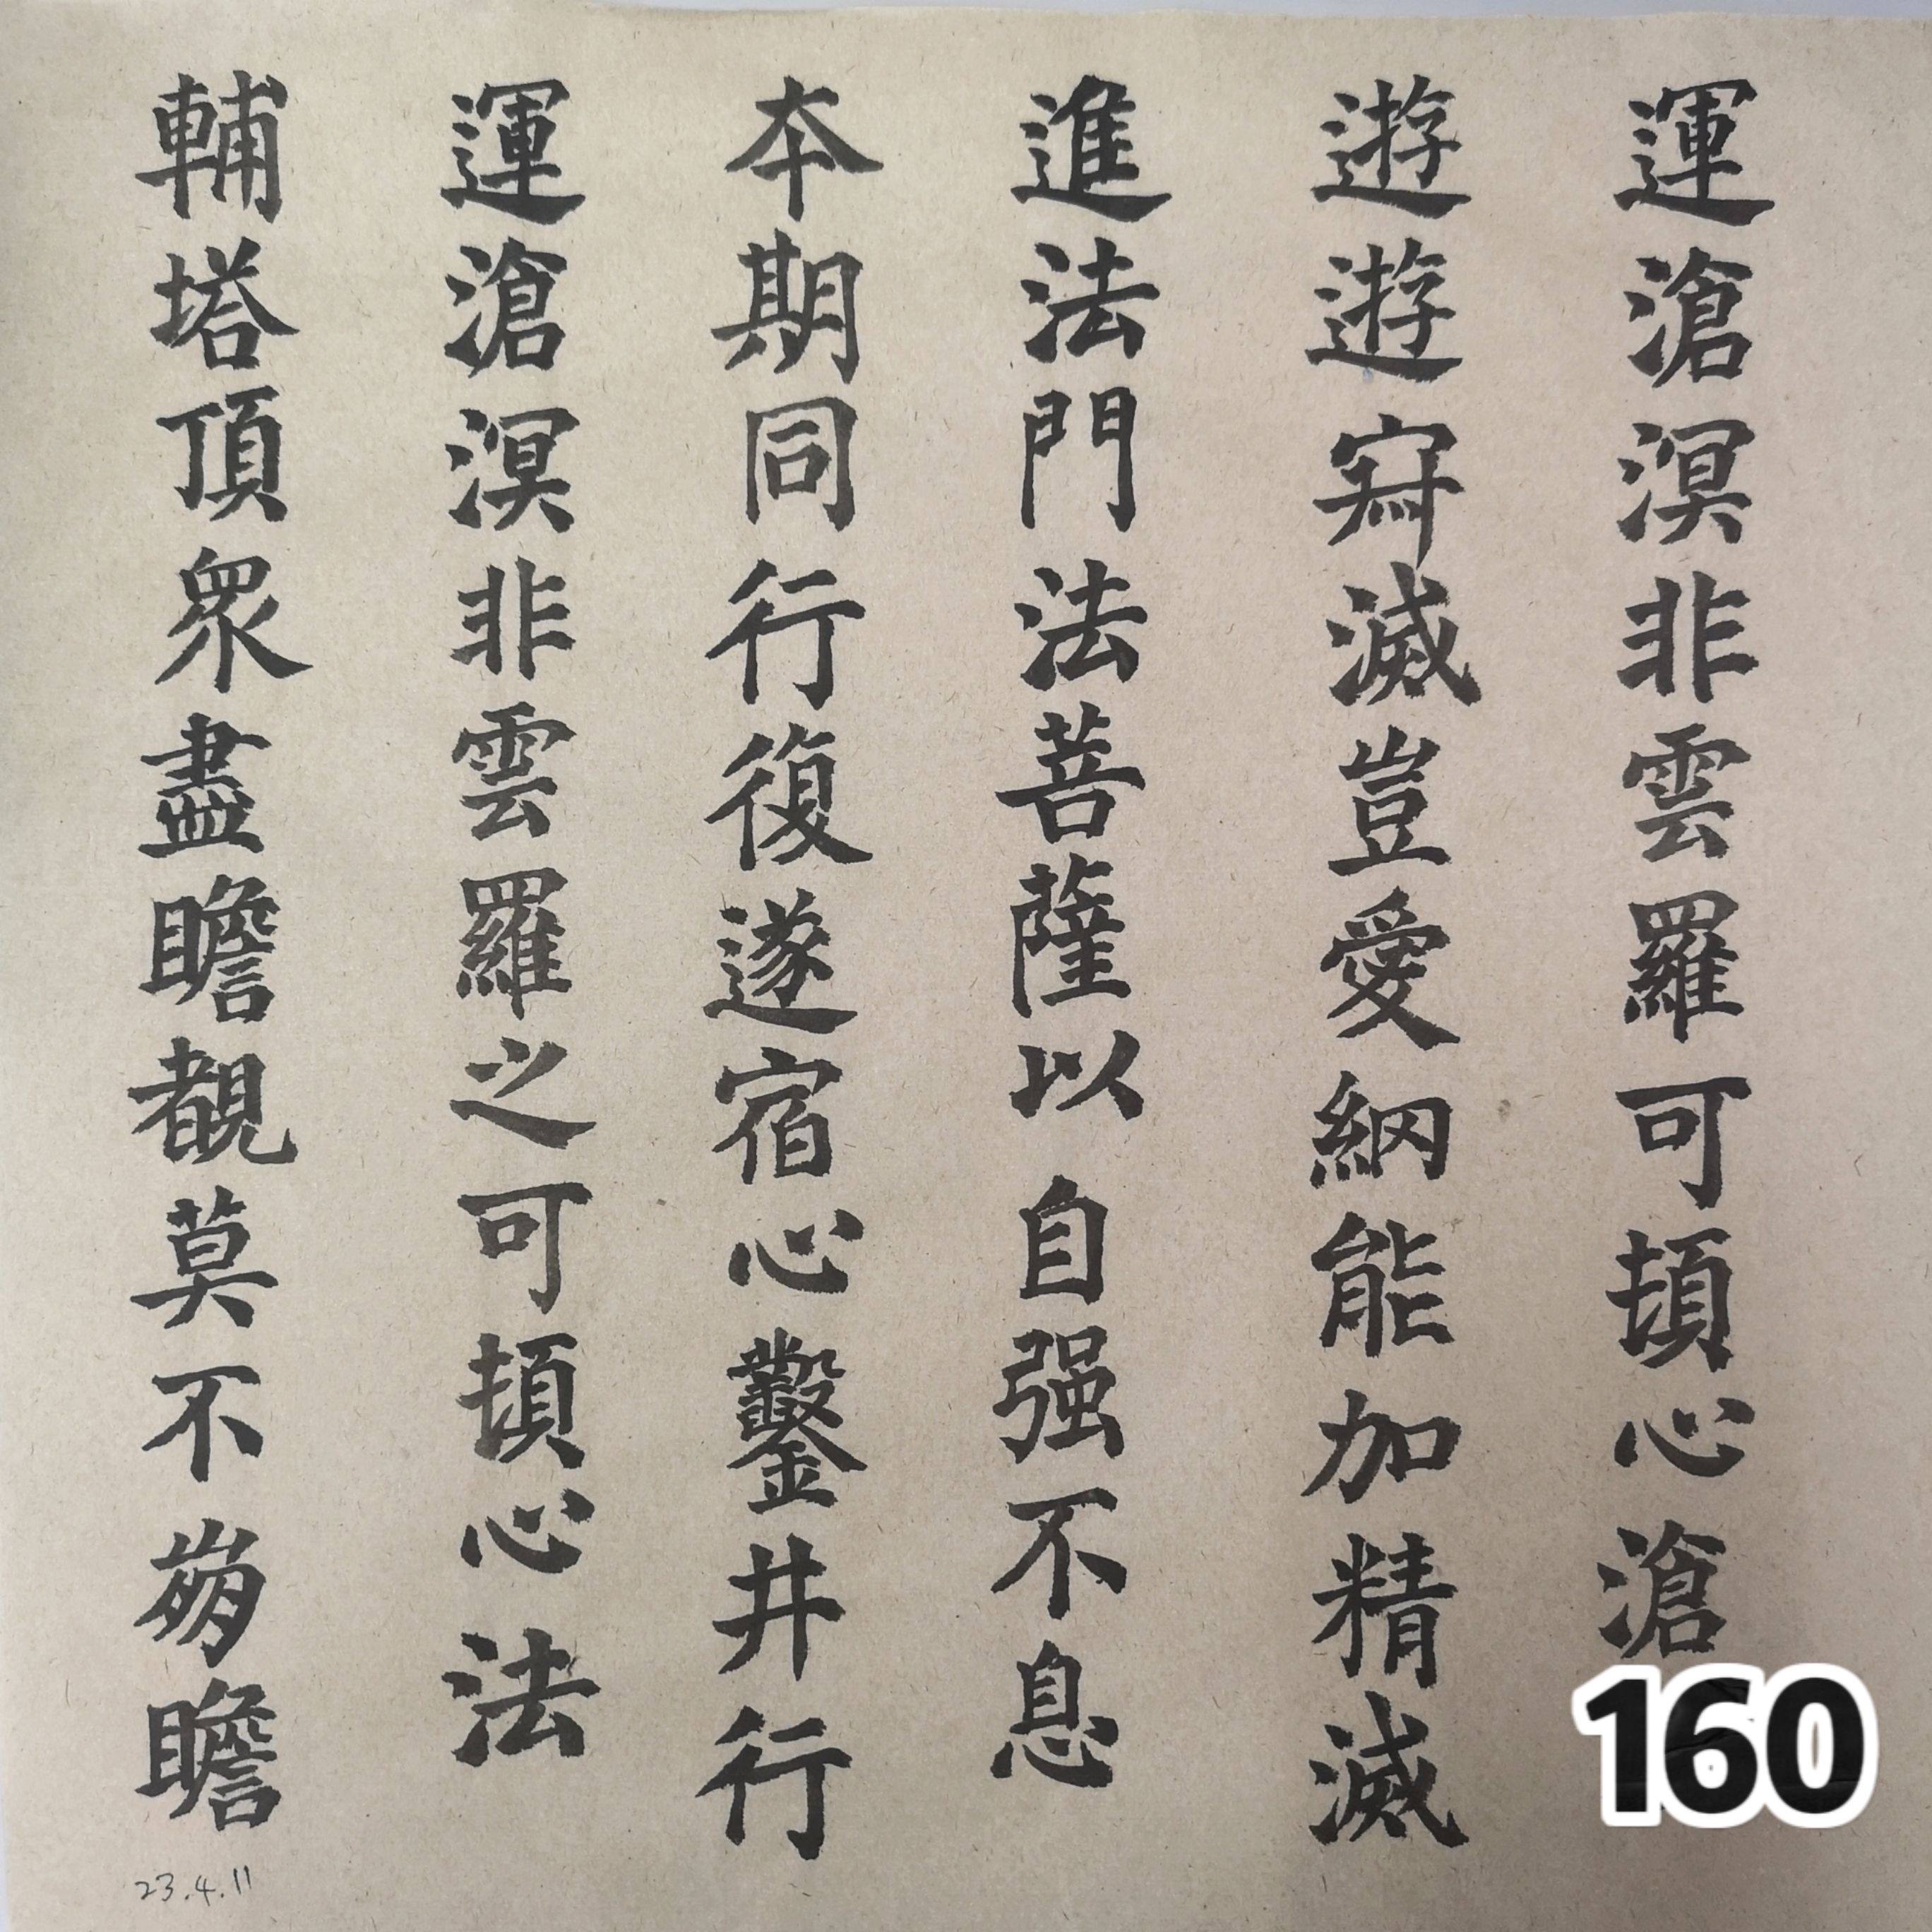 運滄溟非雲羅可頓心滄
遊遊寂滅豈愛網能加精滅
進法門法菩薩以自强不息
本期同行復遂宿心鑿井行
運滄溟非雲羅之可頓心法
輔塔頂眾盡瞻覩莫不崩瞻
160
23.4.11